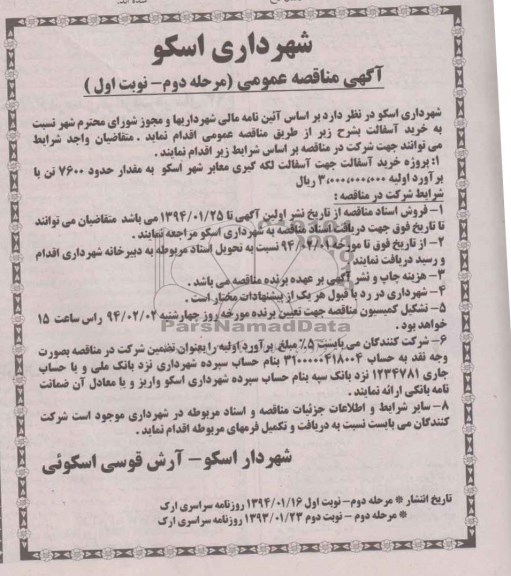 شهرداری اسکو
آگهی مناقصه عمومی (مرحله دوم- نوبت اول )
شهرداری اسکو در نظر دارد بر اساس آئین نامه مالی شهرداریها و مجوز شورای محترم شهر نسبت
به خرید آسفالت بشرح زیر از طریق مناقصه عمومی اقدام نماید . متقاضیان واجد شرایط
می توانند جهت شرکت در مناقصه بر اساس شرایط زیر اقدام نمایند .
۱: پروژه خرید آسفالت جهت آسفالت لکه گیری معابر شهر اسکو به مقدار حدود ۷۶۰۰ تن با
برآورد اولیه ۳،۰۰۰،۰۰۰،۰۰۰ ریال
شرایط شرکت در مناقصه :
۱- فروش اسناد مناقصه از تاریخ نشر اولین آگهی تا ۱۳۹۴/۰۱/۲۵ می باشد متقاضیان می توانند
تا تاریخ فوق جهت دریافت اسناد مناقصه به شهرداری اسکو مراجعه نمایند .
۲- از تاریخ فوق تا مورخه ۹۴/۰۲/۰۱ نسبت به تحویل اسناد مربوطه به دبیرخانه شهرداری اقدام
و رسید دریافت نمایند .
۳- هزینه چاپ و نشر آگهی بر عهده برنده مناقصه می باشد .
۴- شهرداری در رد یا قبول هر یک از پیشنهادات مختار است .
۵- تشکیل کمیسیون مناقصه جهت تعیین برنده مورخه روز چهارشنبه ۹۴/۰۲/۰۲ راس ساعت ۱۵
خواهد بود .
ParsNamadData
۶- شرکت کنندگان می بایست ۵٪ مبلغ برآورد اولیه را بعنوان تضمین شرکت در مناقصه بصورت
وجه نقد به حساب ۳۱۰۰۰۰۰۴۱۸۰۰۴ بنام حساب سپرده شهرداری نزد بانک ملی و یا حساب
جاری ۱۲۳۴۷۸۱ نزد بانک سپه بنام حساب سپرده شهرداری اسکو واریز و یا معادل آن ضمانت
نامه بانکی ارائه نمایند .
۸- سایر شرایط و اطلاعات جزئیات مناقصه و اسناد مربوطه در شهرداری موجود است شرکت
کنندگان می بایست نسبت به دریافت و تکمیل فرمهای مربوطه اقدام نماید .
شهردار اسکو- آرش قوسی اسکوئی
تاریخ انتشار * مرحله دوم- نوبت اول ۱۳۹۴/۰۱/۱۶ روزنامه سراسری ارک
* مرحله دوم - نوبت دوم ۱۳۹۳/۰۱/۲۳ روزنامه سراسری ارک